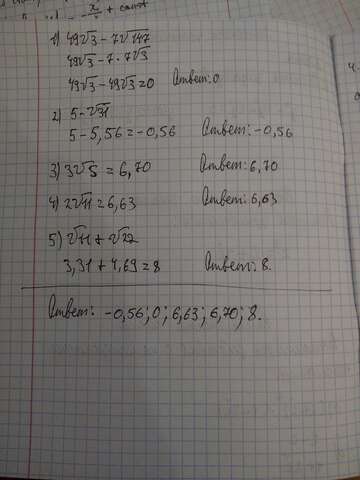 x/x + const
1) 49√3 - 7√147
49√3 - 7·7√3
49√3 - 49√3 = 0 Ответ: 0
2) 5 - √31
5 - 5,56 = -0,56 Ответ: -0,56
3) 3√5 = 6,70 Ответ: 6,70
4) 2√11 = 6,63 Ответ: 6,63
5) √11 + √22
3,31 + 4,69 = 8 Ответ: 8.
Ответ: -0,56; 0; 6,63; 6,70; 8.